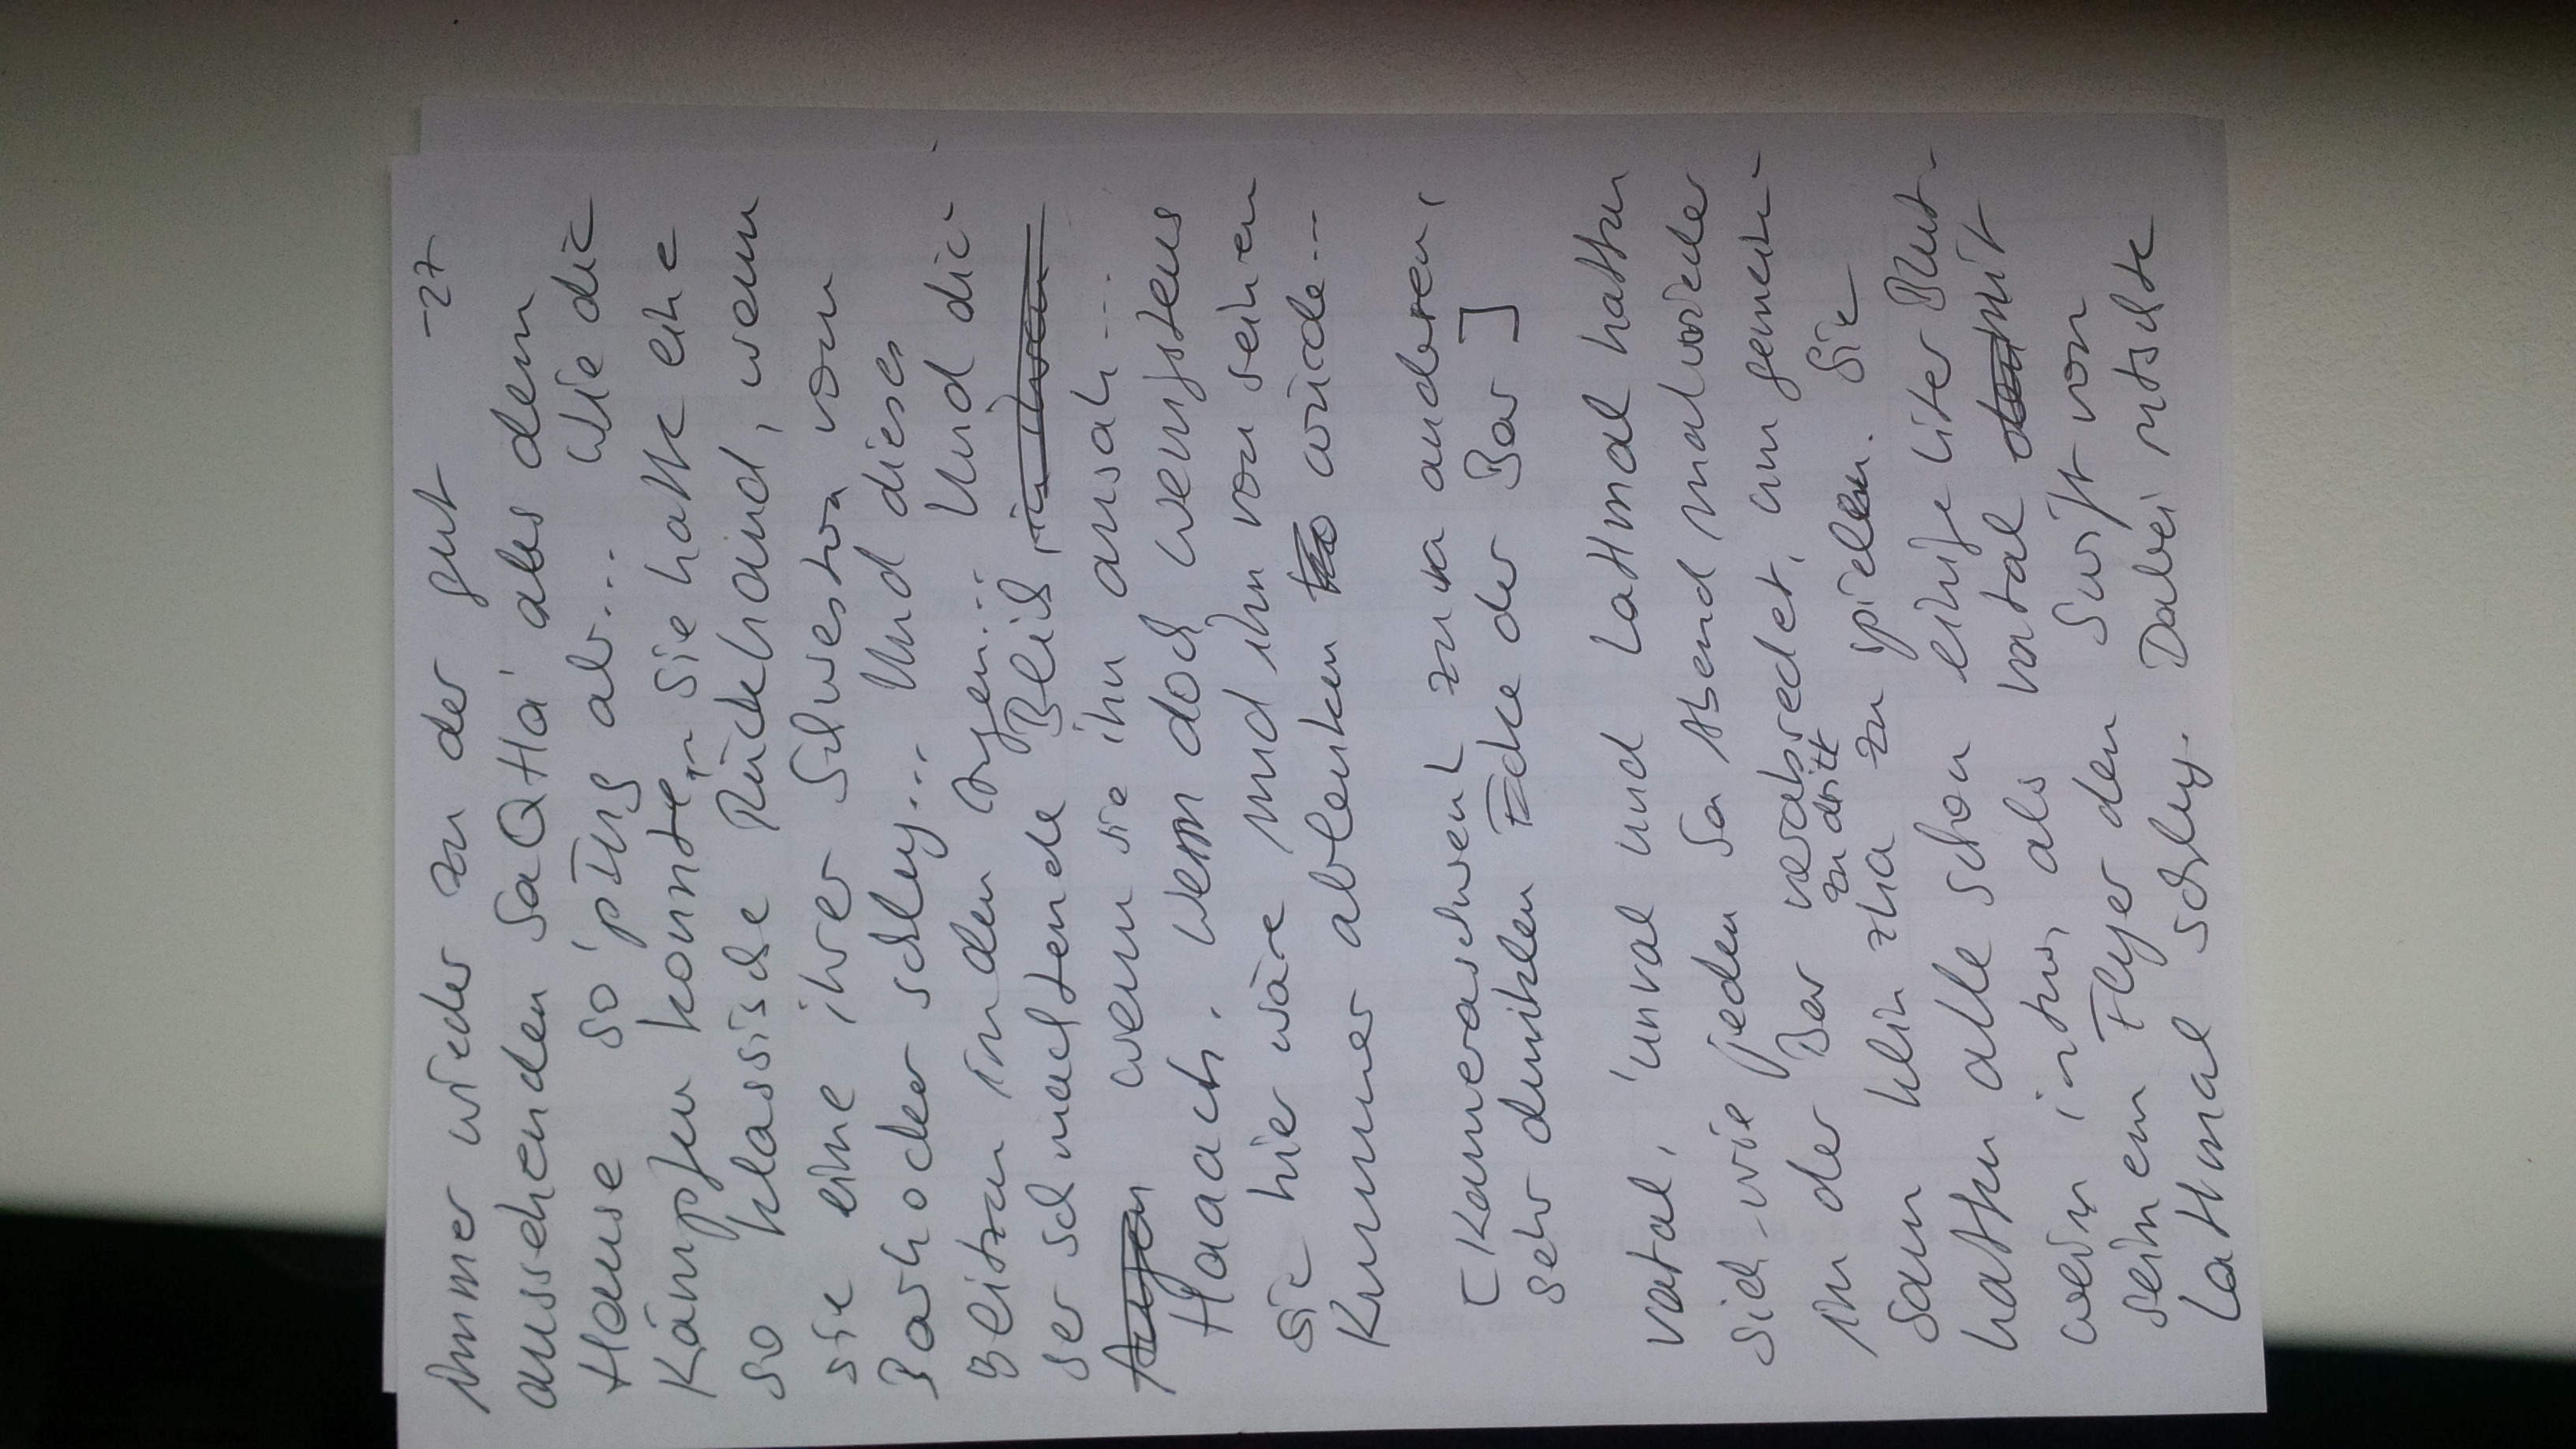 -27
immer wieder zu der gut
aussehenden SaQHa' aus dem
Hause So'pIng ab... Wie die
Kämpfen konnte... Sie hatte eine
so klassische Rückhand, wenn
sie eine ihrer Schwestern vom
Barhocker schlug... Und dieses
Blitzen in den Augen... Und die-
ser schmachtende Blick, in ihren
Augen wenn sie ihn ansah...
Haach. Wenn doch wenigstens
sie hier wäre und ihn von seinen
Kummer ablenken würde...
[Kameraschwenk zur anderen,
sehr dunklen Ecke der Bar]
vatal, 'unval und LatImal hatten
sich - wie jeden Sa Abend mal wieder
in der Bar verabredet, um gemein-
zu dritt
sam klin zha zu spielen. Sie
hatten alle schon einige Liter Blut-
wein intus, als vatal mit
seinem Flyer den Swift von
LatImal schlug. Dabei rutschte